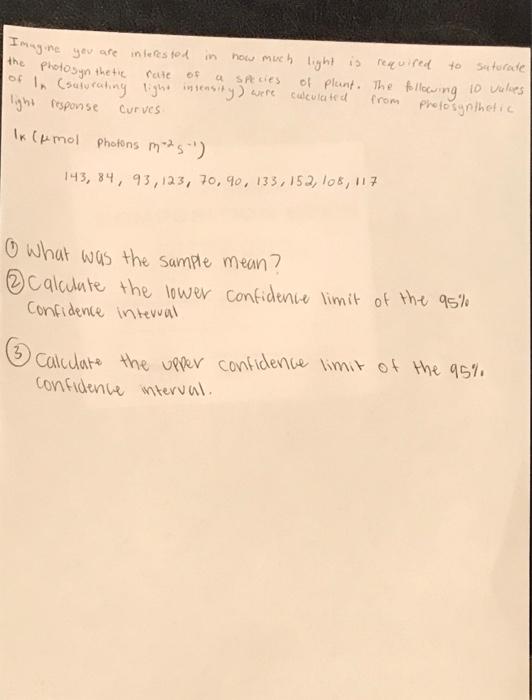 Imagine you are interested in how much light is required to saturate
the photosynthetic rate of a species of plant. The following 10 values
of Ik (saturating light intensity) were calculated from photosynthetic
light response curves.
Ik (μmol photons m⁻² s⁻¹)
143, 84, 93, 123, 70, 90, 133, 152, 108, 117
① What was the sample mean?
② Calculate the lower confidence limit of the 95%
Confidence interval
③ Calculate the upper confidence limit of the 95%
confidence interval.